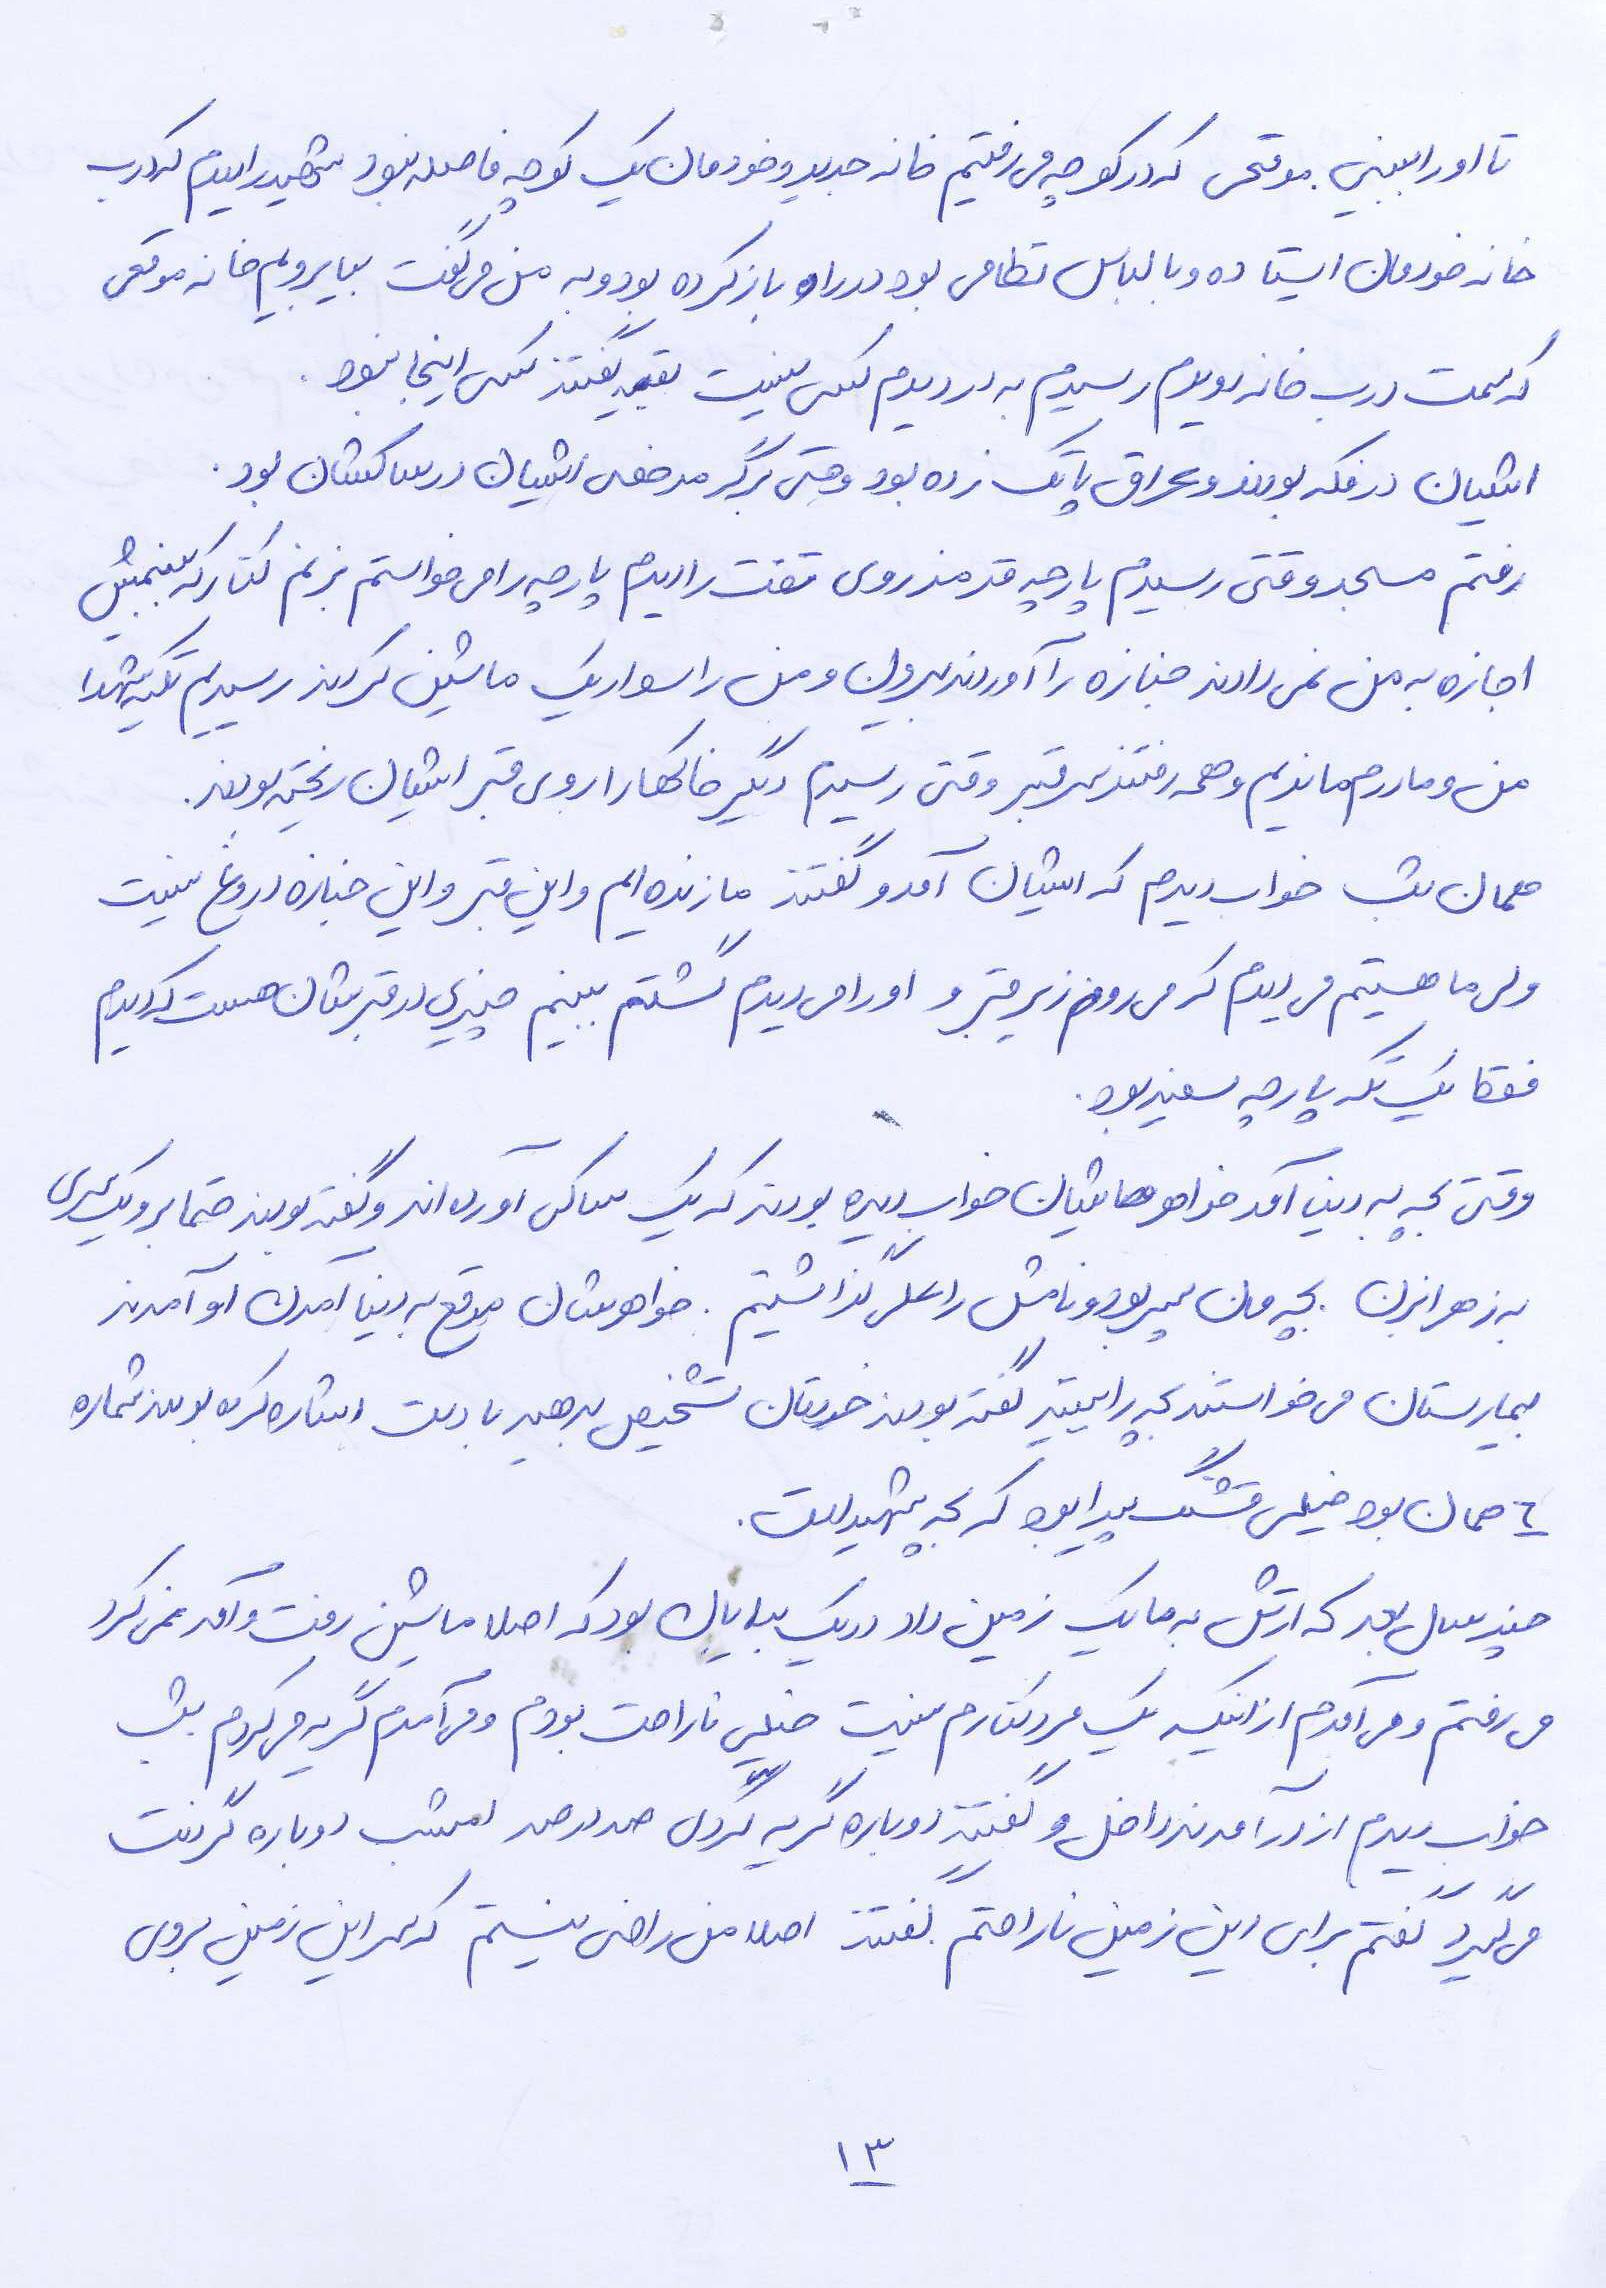 تا او را ببینی. موقعی که در کوچه می رفتیم خانه جدید و خودمان یک کوچه فاصله نبود شهید را دیدم که درب
خانه خودمان ایستاده و با لباس نظامی بود در را باز کرده بود و به من می گفت بیا برویم خانه موقعی
که سمت درب خانه دویدم رسیدم به در دیدم کسی نیست بقیه گفتند کسی اینجا نبود.
ایشیان در فکه بودند و عراق پاتک زده بود و حتی برگه مرخصی ایشیان در ساکشان بود.
رفتم مسجد وقتی رسیدم پارچه قرمز روی تفت را دیدم پارچه را می خواستم بزنم کنار که ببینمش
اجازه به من نمی دادند جنازه را آوردند بیرون و من را سوار یک ماشین کردند رسیدیم تکیه شهدا
من و مادرم ماندیم و همه رفتند سر قبر وقتی رسیدم دیگر خاکها را روی قبر ایشیان ریخته بودند.
همان شب خواب دیدم که ایشیان آمد و گفتند ما زنده ایم و این قبر و این جنازه دروغ نیست
ولی ما هستیم می دیدم که می روم زیر قبر و او را می دیدم گشتم ببینم چیزی در قبرشان هست که دیدم
فقط یک تکه پارچه سفید بود.
وقتی بچه به دنیا آمد خواهرهایشان خواب دیده بودند که یک ساک آورده اند و گفته بودند حتما برو یک سری
به زهرا بزن. بچه مان پسر بود و نامش را علی گذاشتیم. خواهرشان موقع به دنیا آمدن او آمدند
بیمارستان می خواستند بچه را ببینند گفته بودند خودتان تشخیص بدهید با دست اشاره کرده بودند شماره
٤ همان بود خیلی قشنگ پیدا بود که بچه شهید است.
چند سال بعد که ارتش به ما یک زمین داد در یک بیابان بود که اصلا ماشین رفت و آمد نمی کرد
می رفتم و می آمدم از اینکه یک مرد کنارم نیست خیلی ناراحت بودم و می آمدم گریه می کردم شب
خواب دیدم از در آمدند داخل و گفتند دوباره گریه کردی صد در صد امشب دوباره گرفت
می گیرد گفتم برای این زمین ناراحتم گفتند اصلا من راضی نیستم که سر این زمین بروی
١٣